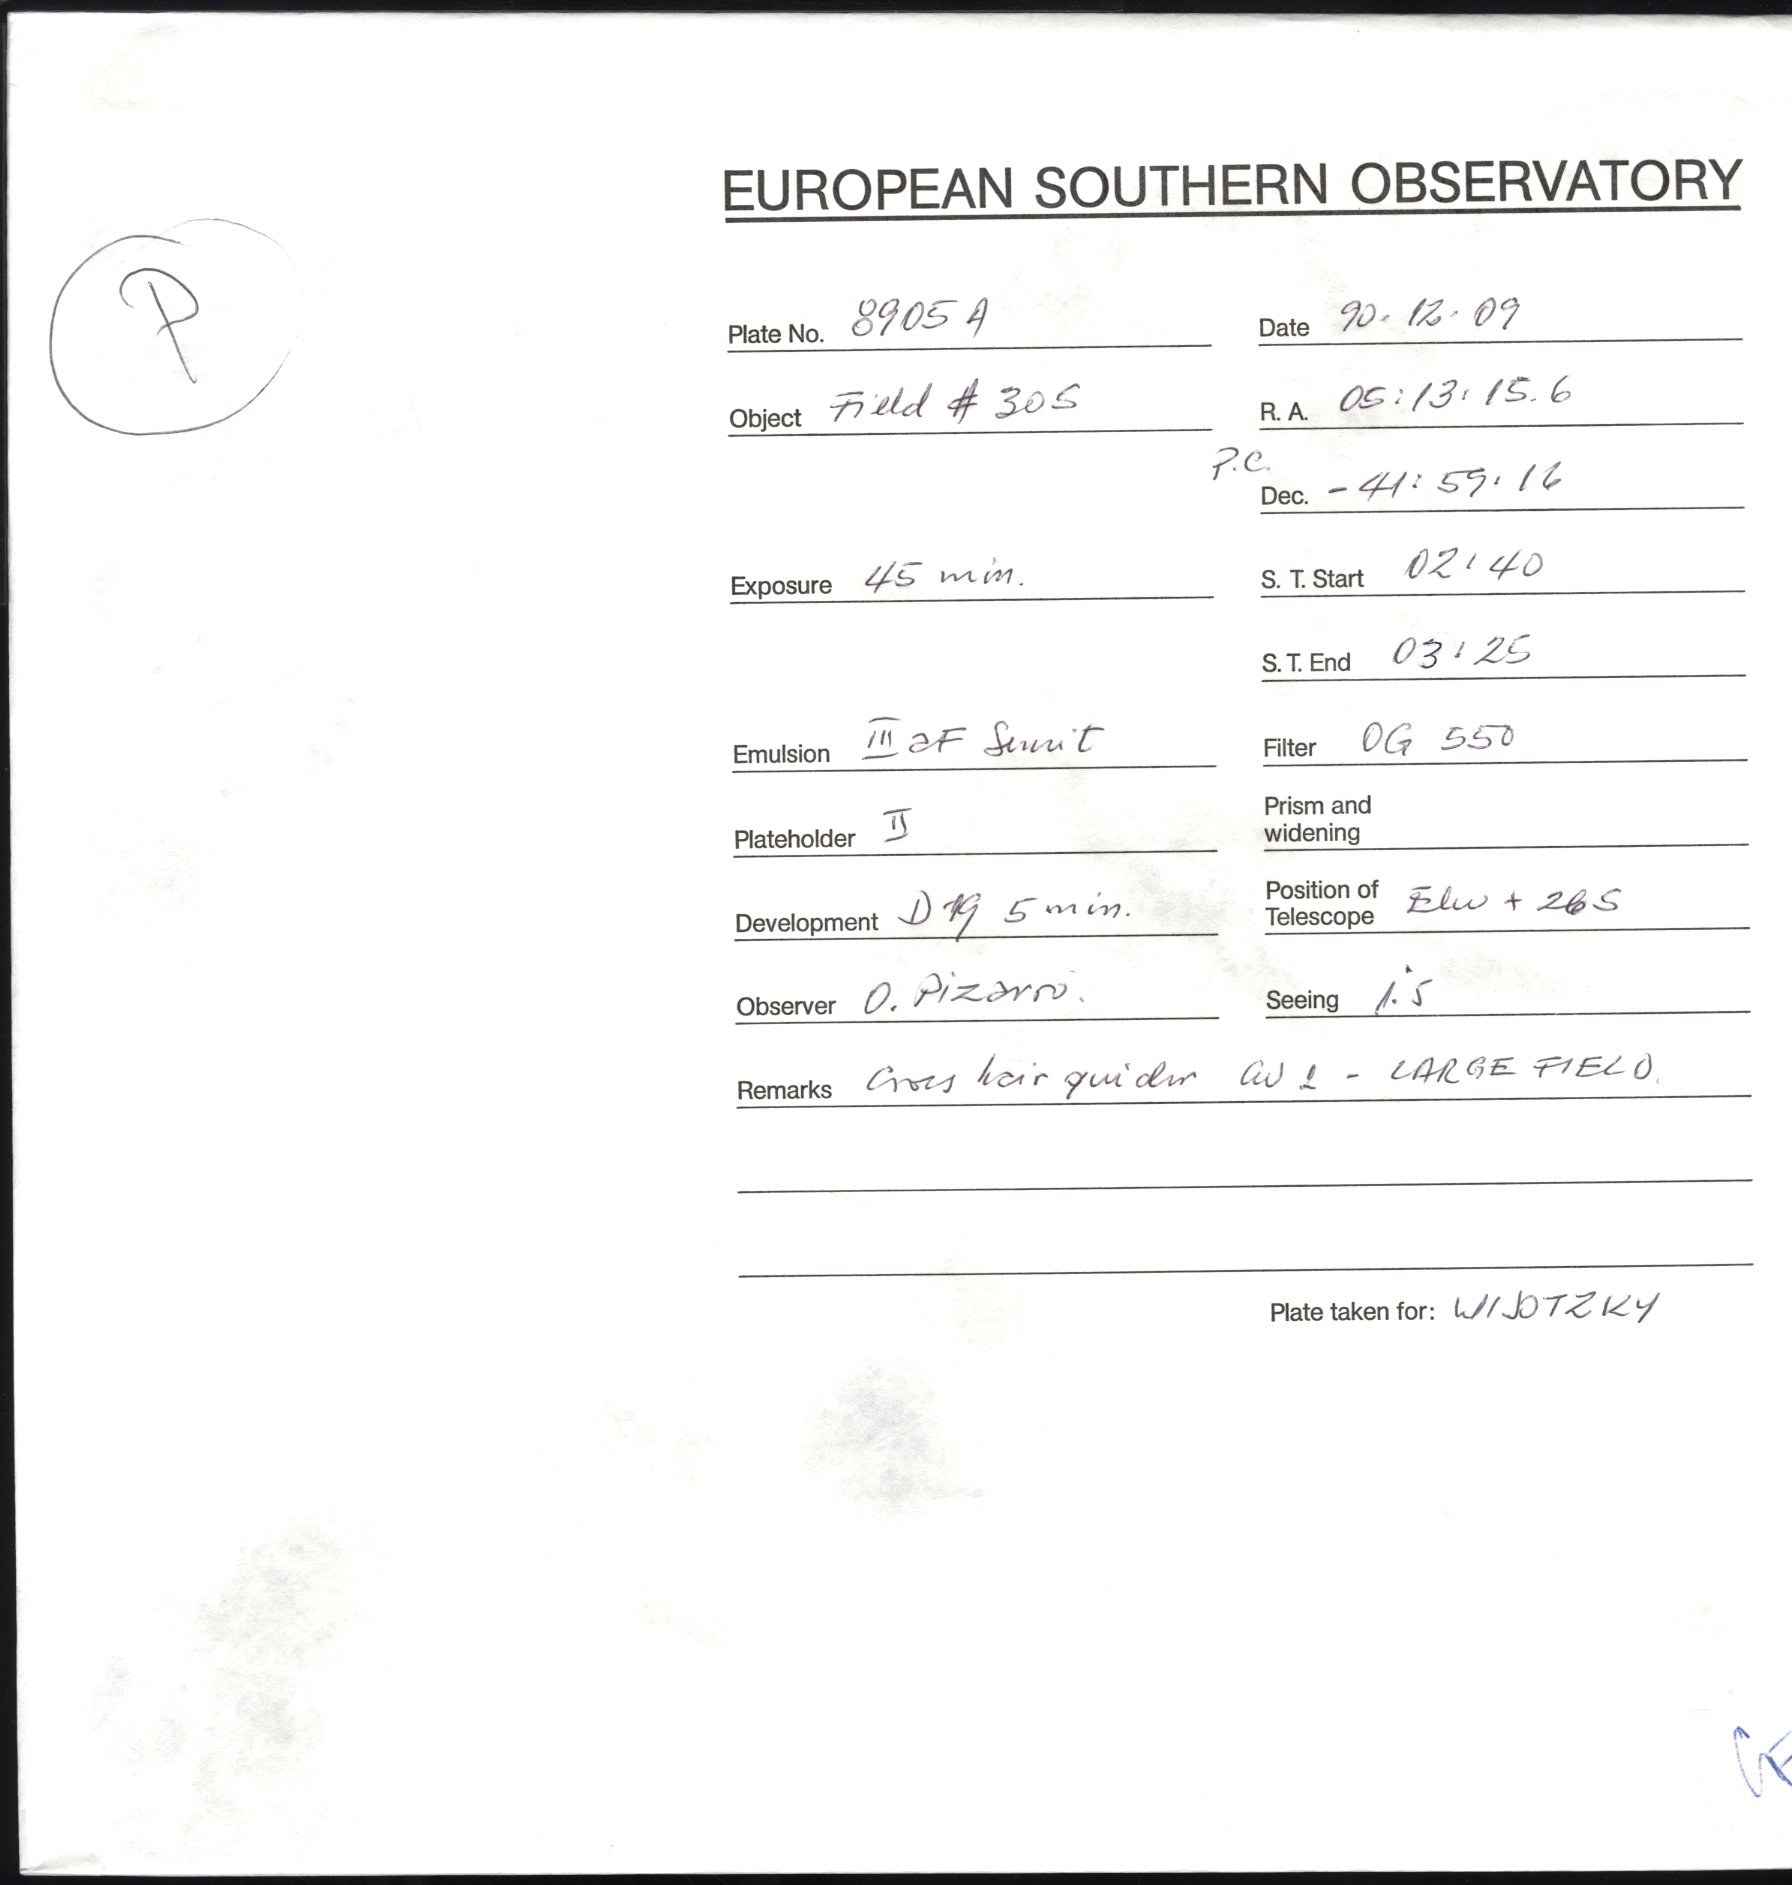 EUROPEAN SOUTHERN OBSERVATORY
P
Plate No. 8905 A
Date 90.12.09
Object Field # 305
R. A. 05:13:15.6
P.C.
Dec. -41:59:16
Exposure 45 min.
S. T. Start 02:40
S. T. End 03:25
Emulsion III aF
Filter OG 550
Plateholder II
Prism and
widening
Development D 19 5 min.
Position of
Telescope + 265
Observer O. Pizarro.
Seeing 1.5
Remarks Cross hair guider - LARGE FIELD.
Plate taken for: WISOTZKY